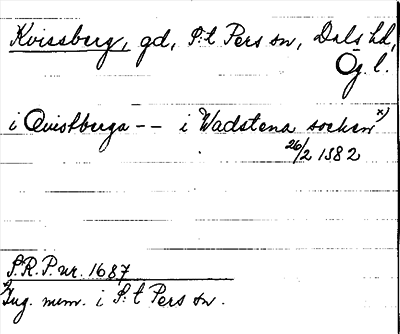 Kvissberg, gd, S:t Pers sn, Dals hd,
Ög. l.
i Qvistberga -- i Wadstena socken x)
26/2 1582
S.R.P. nr. 1687
x) Lug. mem. i S:t Pers sn.